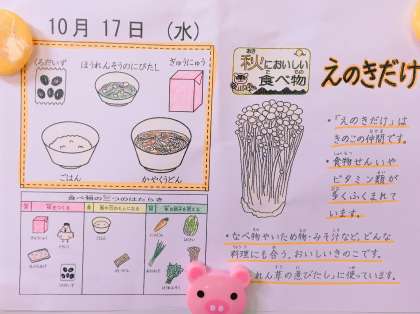 10月17日（水）
くろだいず
ほうれんそうのにびたし
ぎゅうにゅう
ごはん
かやくうどん
食べ物の三つのはたらき
秋においしい
あき
食べ物
た もの
えのきだけ
・「えのきだけ」は
きのこの仲間です。
・食物せんいや
ビタミン類が
多くふくまれて
います。
・なべ物やいため物・みそ汁など、どんな
料理にも合う、おいしいきのこです。
れん草の煮びたし」に使っています。